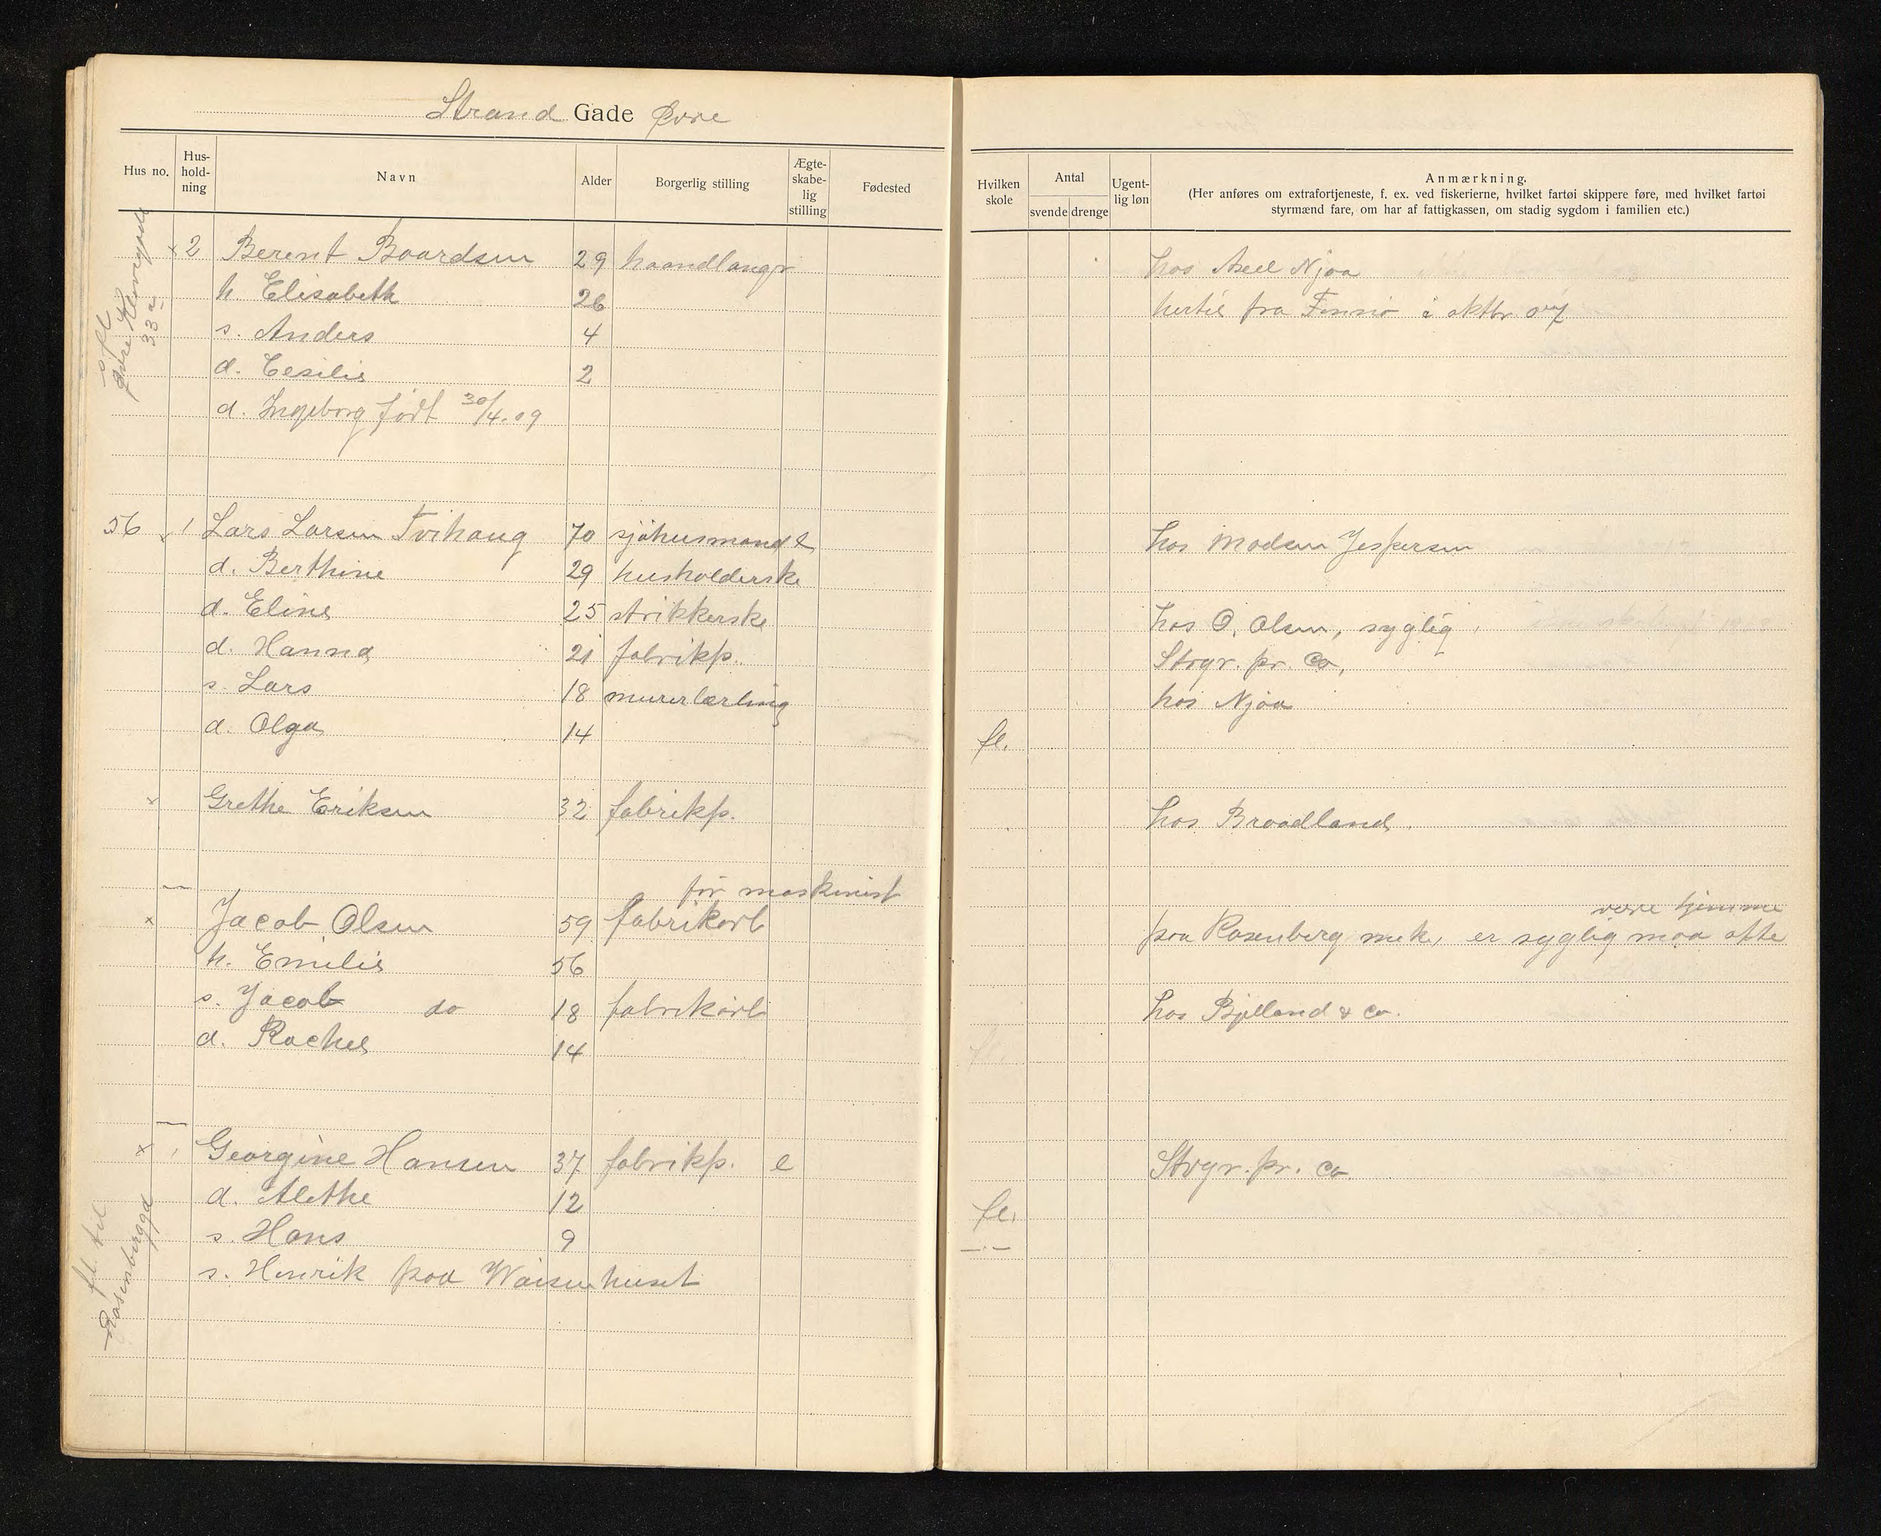 Strand Gade Øvre
Hus no. Hus-holdning Navn Alder Borgerlig stilling Ægte-skabe-lig stilling Fødested
Hvilken skole Antal svende drenge Ugent-lig løn Anmærkning.
(Her anføres om extrafortjeneste, f. ex. ved fiskerierne, hvilket fartøi skippere føre, med hvilket fartøi
styrmænd fare, om har af fattigkassen, om stadig sygdom i familien etc.)
x 2 Berent Baardsen 29 haandlanger hos Axel Njaa
h Elisabeth 26 hertil fra Finnø i oktbr 07
s. Anders 4
d. Cesilie 2
d. Ingeborg født 30/4.09
Øvre Kleivegade
33a
56 1 Lars Larsen Tvihaug 70 sjøhusmand e hos Madsen Jespersen
d. Berthine 29 husholderske
d. Eline 25 strikkerske hos O. Olsen, syglig
d. Hanna 21 fabrikp. Stvgr. pr. Co,
s. Lars 18 murerlærling hos Njaa
d. Olga 14 fl.
x Grethe Eriksen 32 fabrikp. hos Braadland.
— før maskinist
x Jacob Olsen 59 fabrikarb paa Rosenberg mek, er syglig maa ofte
være hjemme
h. Emilie 56
s. Jacob do 18 fabrikarb hos Bjelland & Co.
d. Rachel 14 fl.
—
x 1 Georgine Hansen 37 fabrikp. e Stvgr. pr. Co
d. Alethe 12 fl.
s. Hans 9 — " —
s. Henrik paa Waisenhuset
fl. til
Rosenberggd